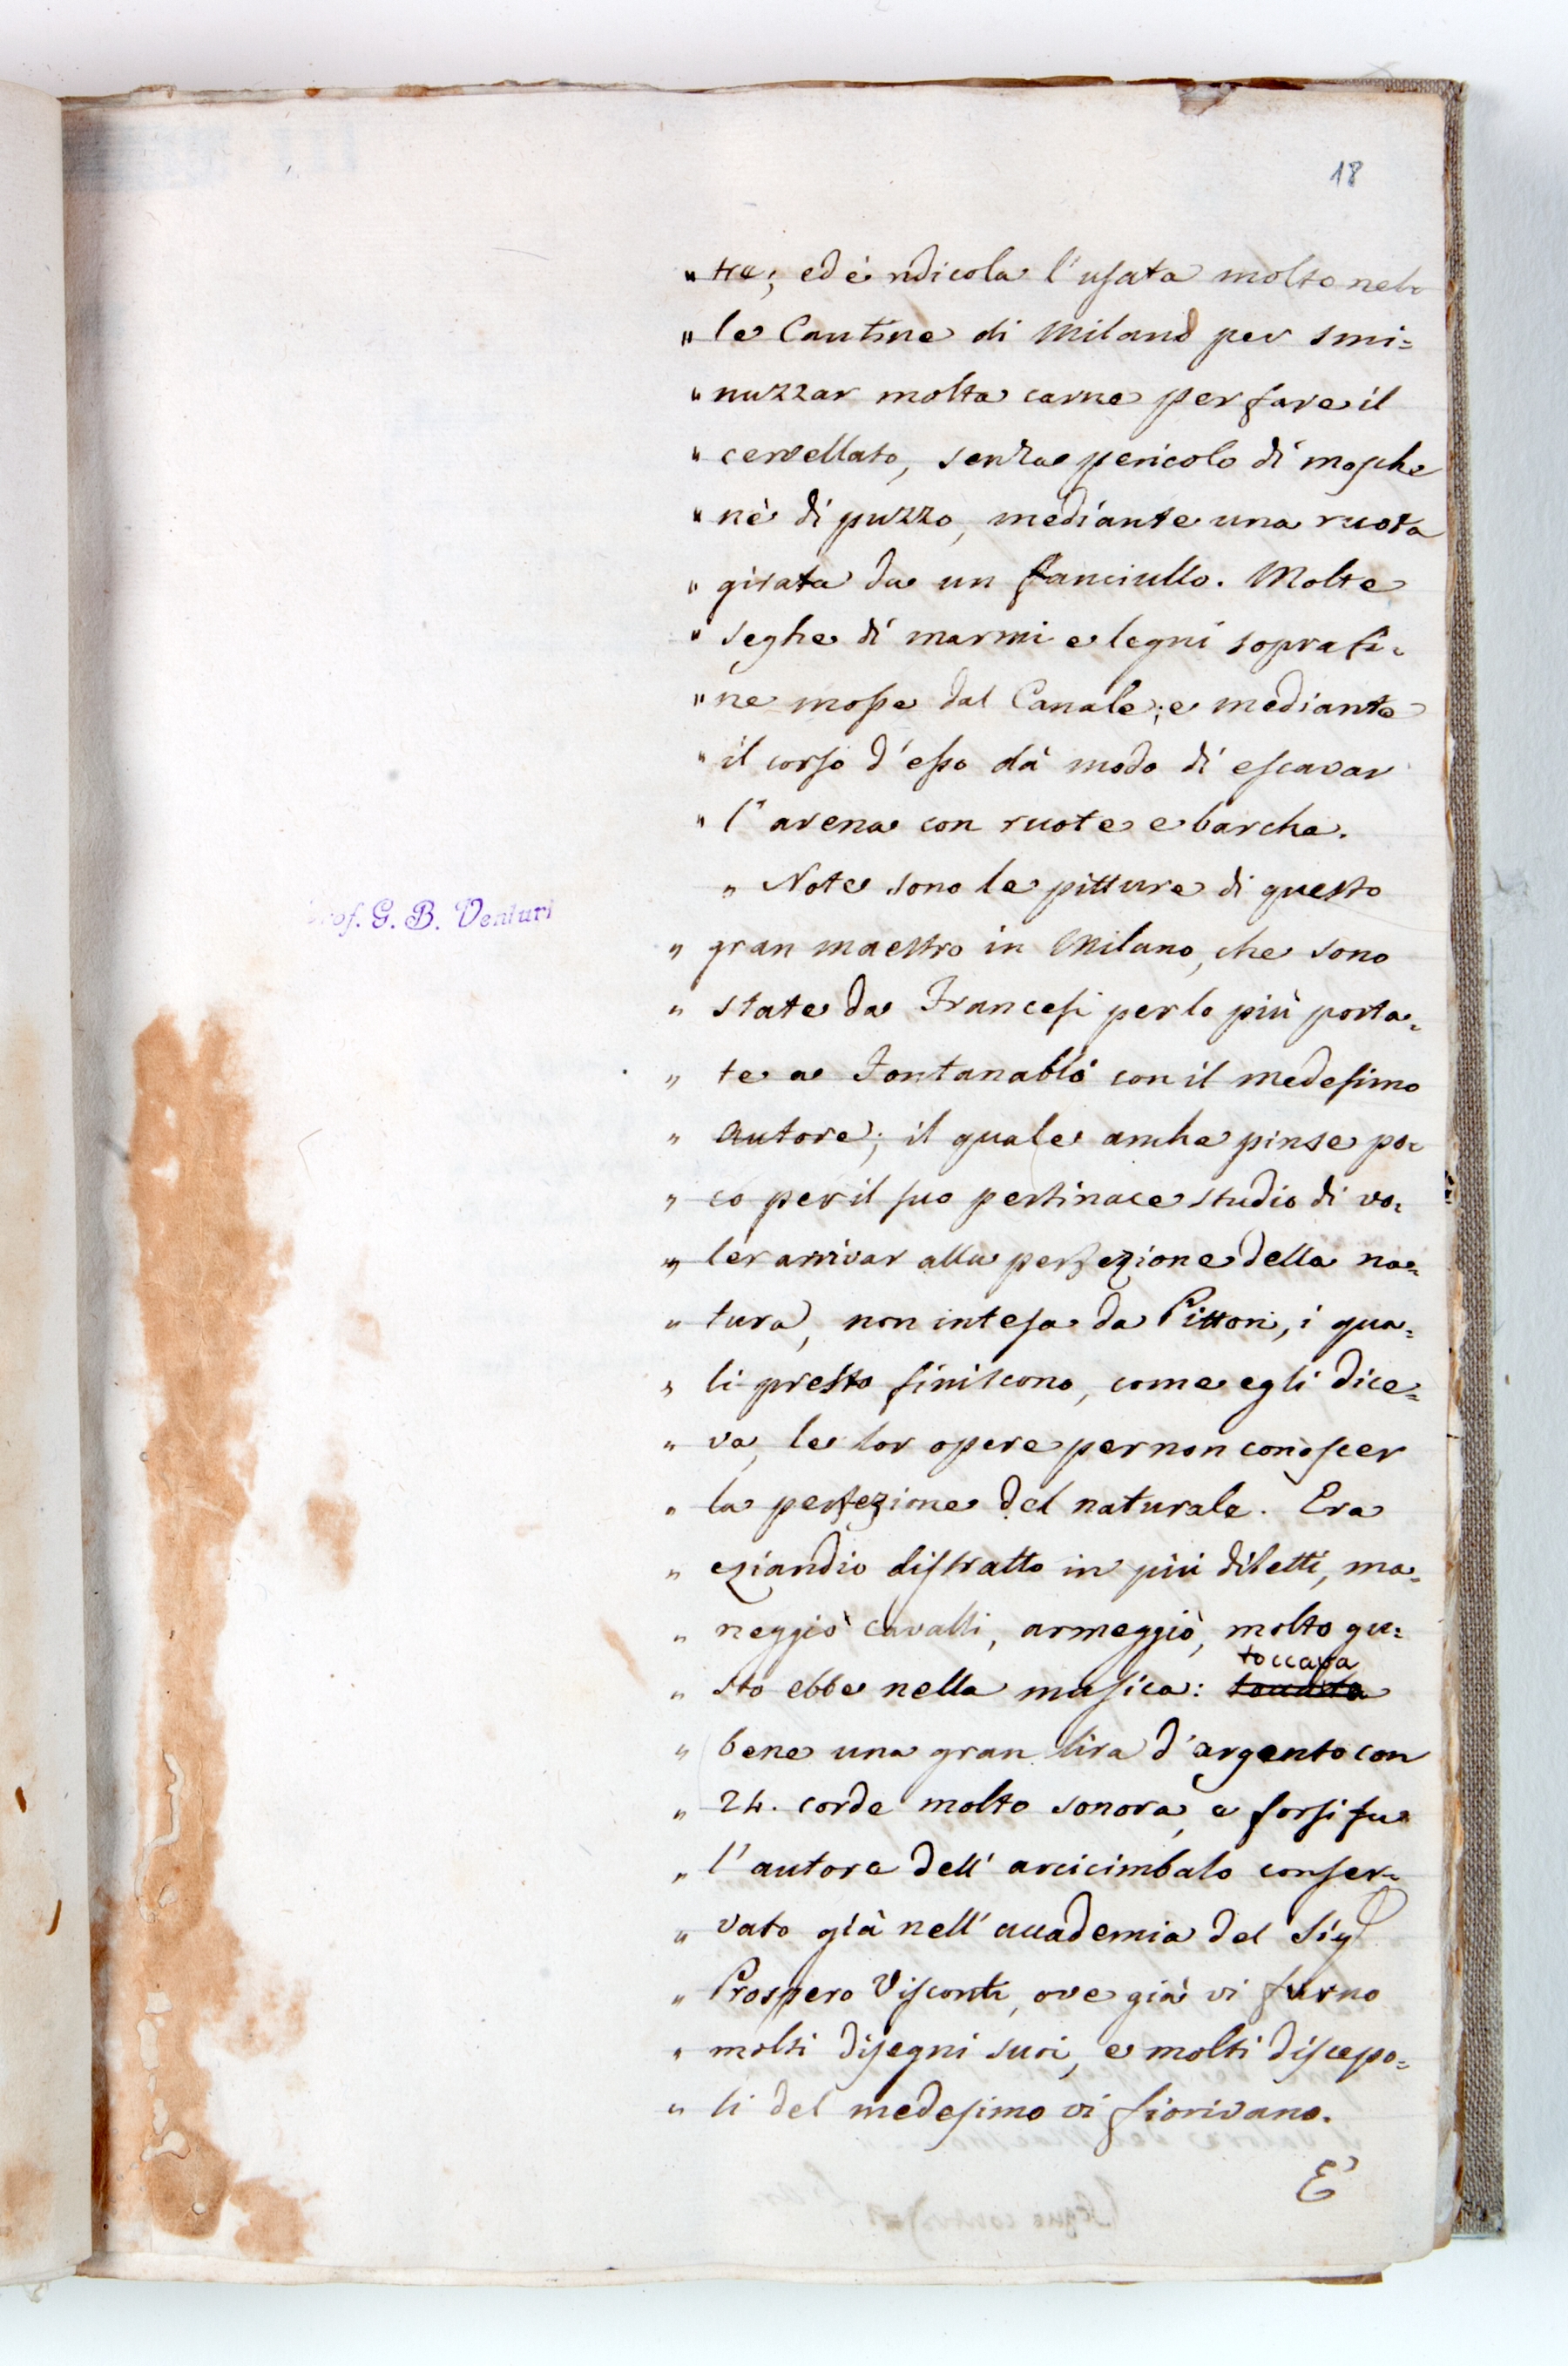 18
" tre; ed è ridicola l'usata molto nel=
" le Cantine di Milano per smi=
" nuzzar molta carne per fare il
" cervellato, senza pericolo di mosche
" nè di puzzo, mediante una ruota
" girata da un fanciullo. Molte
" seghe di marmi e legni soprafi=
" ne mosse dal Canale; e mediante
" il corso d'esso dà modo di escavar
" l'arena con ruote e barche.
" Note sono le pitture di questo
" gran maestro in Milano, che sono
" state da Francesi per lo più porta=
" te a Fontanablò con il medesimo
" autore; il quale anche pinse po=
" co per il suo pertinace studio di vo=
" ler arrivar alla perfezione della na=
" tura, non intesa da Pittori, i qua=
" li presto finiscono, come egli dice=
" va, le lor opere per non conoscer
" la perfezione del naturale. Era
" eziandio distratto in più diletti, ma=
" neggiò cavalli, armeggiò, molto gu=
" sto ebbe nella musica: toccava
" bene una gran lira d'argento con
" 24. corde molto sonora, e forsi fu
" l'autore dell'arcicimbalo conser=
" vato già nell'accademia del Sig.
" Prospero Visconti, ove già vi furno
" molti disegni suoi, e molti discepo=
" li del medesimo vi fiorivano.
E'
Prof. G. B. Venturi